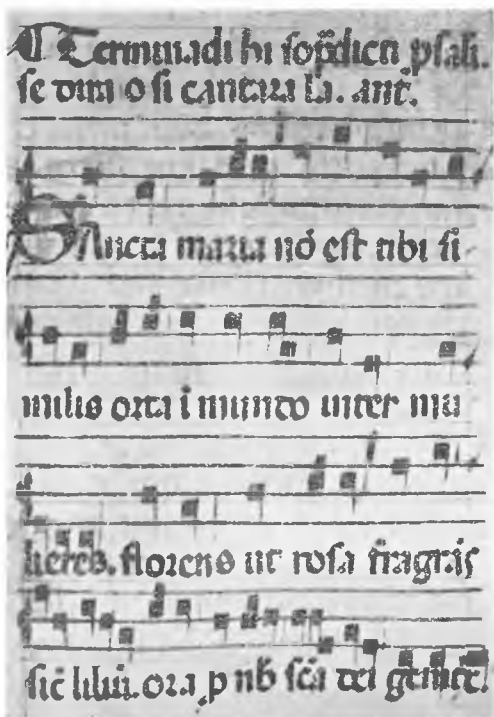 ¶ Terminadi hi sop̃dicti psalı.
se dirai o si cantara la. ant̃.
Sancta maria nō est tibi si
milis orta ī mundo inter mu
lieres. florens ut rosa fragrãs
sic̃ liliũ. ora p nb̃ sc̃a dei genitr̃.